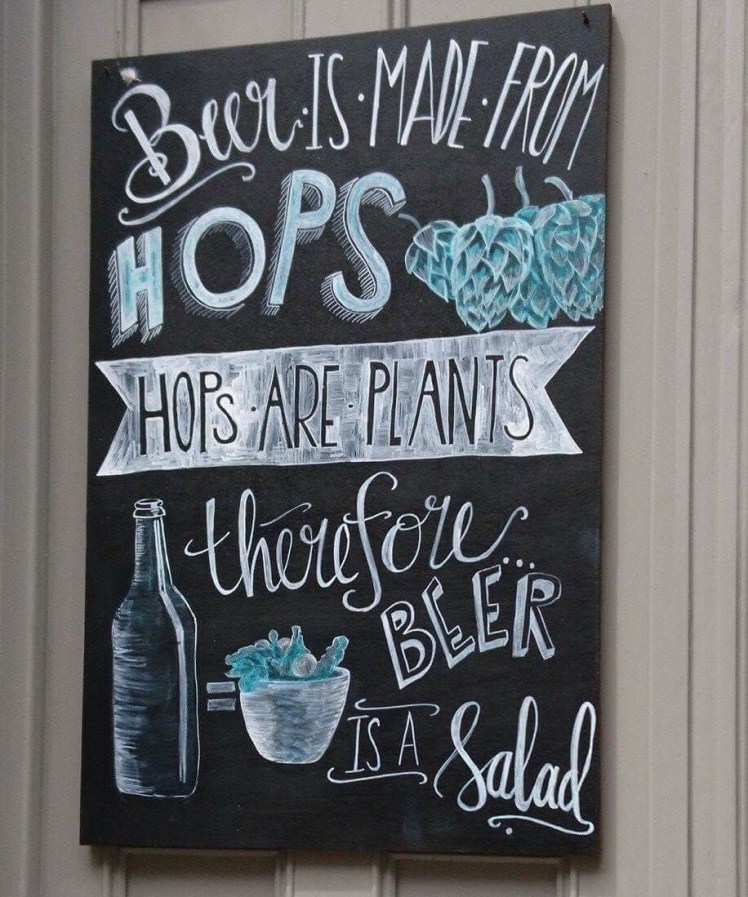 Beer·IS·MADE·FROM
HOPS
HOPS·ARE·PLANTS
therefore...
BEER
=
IS A Salad